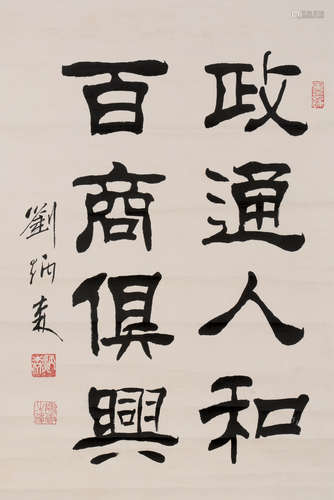 政通人和
百商俱興
劉炳森